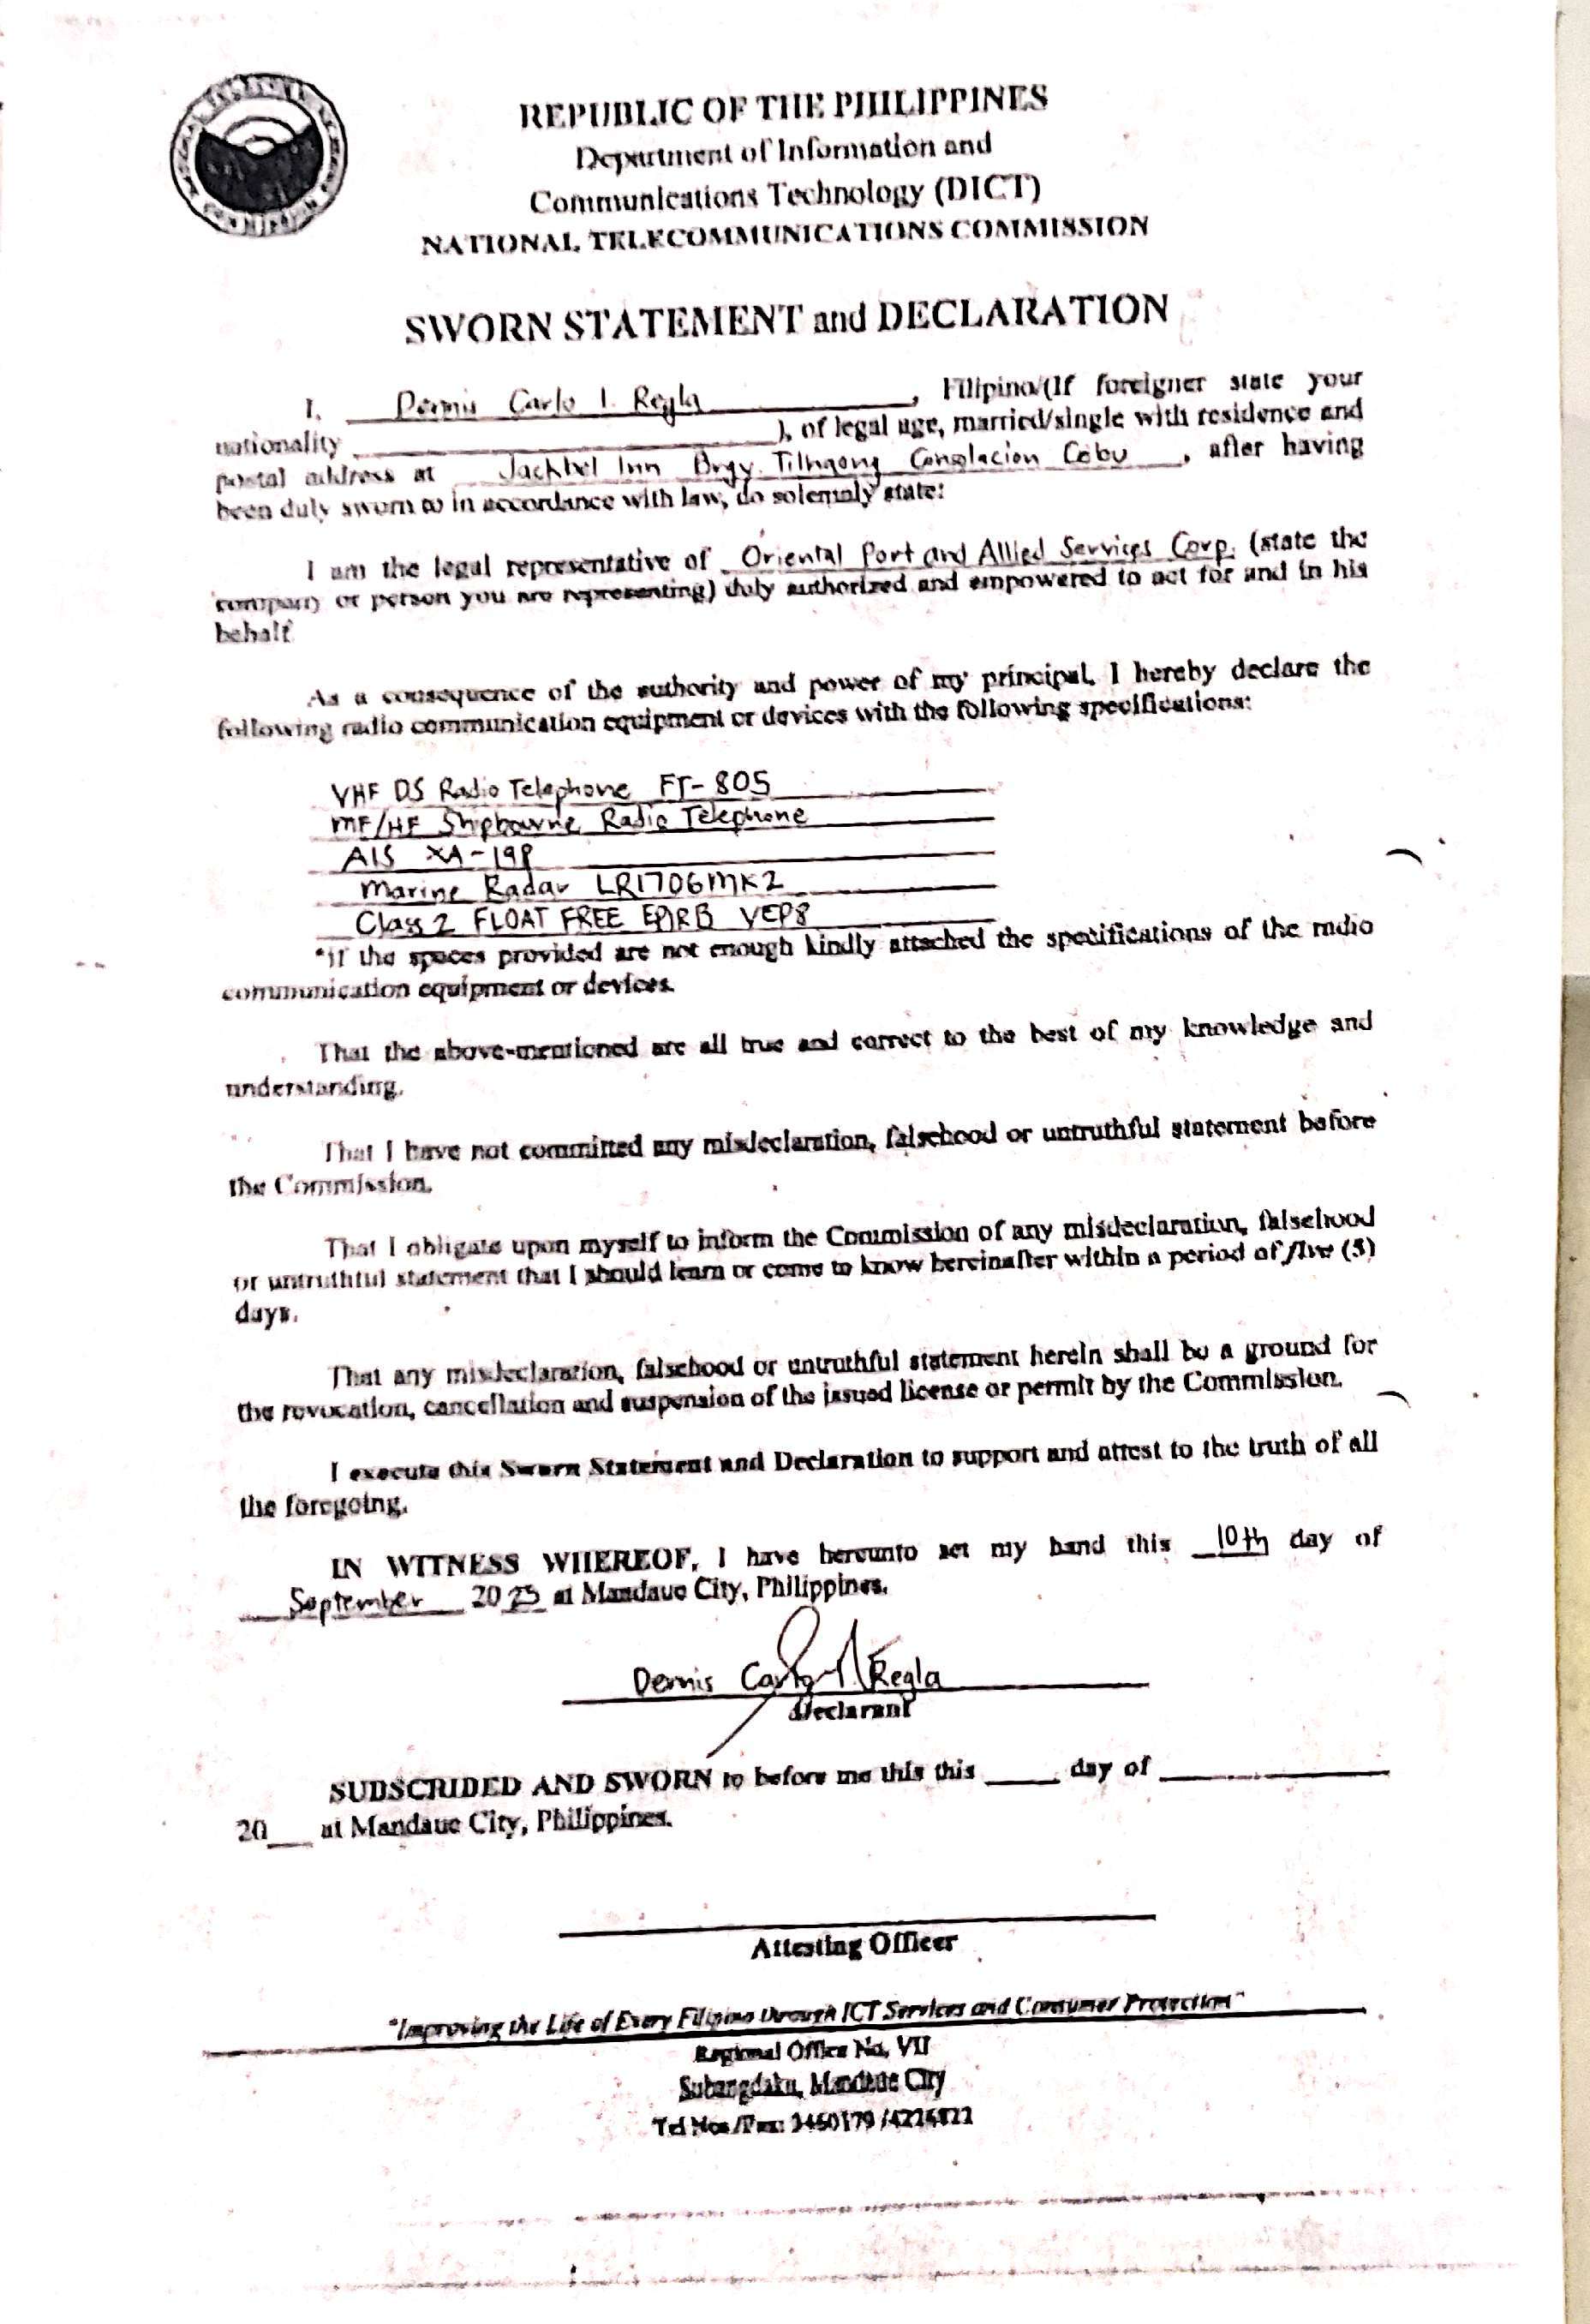 REPUBLIC OF THE PHILIPPINES
Department of Information and
Communications Technology (DICT)
NATIONAL TELECOMMUNICATIONS COMMISSION
SWORN STATEMENT and DECLARATION
I, Dennis Carlo I. Regla, Filipino/(If foreigner state your
nationality ____________), of legal age, married/single with residence and
postal address at Jackbel Inn Brgy. Tilhaong Consolacion Cebu, after having
been duly sworn to in accordance with law, do solemnly state:
I am the legal representative of Oriental Port and Allied Services Corp. (state the
company or person you are representing) duly authorized and empowered to act for and in his
behalf
As a consequence of the authority and power of my principal, I hereby declare the
following radio communication equipment or devices with the following specifications:
VHF DS Radio Telephone FT-805
MF/HF Shipbourne Radio Telephone
AIS XA-198
Marine Radar LR1706MK2
Class 2 FLOAT FREE EPIRB VEP8
*if the spaces provided are not enough kindly attached the specifications of the radio
communication equipment or devices.
That the above-mentioned are all true and correct to the best of my knowledge and
understanding.
That I have not committed any misdeclaration, falsehood or untruthful statement before
the Commission.
That I obligate upon myself to inform the Commission of any misdeclaration, falsehood
or untruthful statement that I should learn or come to know hereinafter within a period of five (5)
days.
That any misdeclaration, falsehood or untruthful statement herein shall be a ground for
the revocation, cancellation and suspension of the issued license or permit by the Commission.
I execute this Sworn Statement and Declaration to support and attest to the truth of all
the foregoing.
IN WITNESS WHEREOF, I have hereunto set my hand this 10th day of
September 2023 at Mandaue City, Philippines.
Dennis Carlo I. Regla
Declarant
SUBSCRIBED AND SWORN to before me this this ____ day of ____________
20___ at Mandaue City, Philippines.
Attesting Officer
"Improving the Life of Every Filipino through ICT Services and Consumer Protection"
Regional Office No. VII
Subangdaku, Mandaue City
Tel Nos/Fax: 3460179